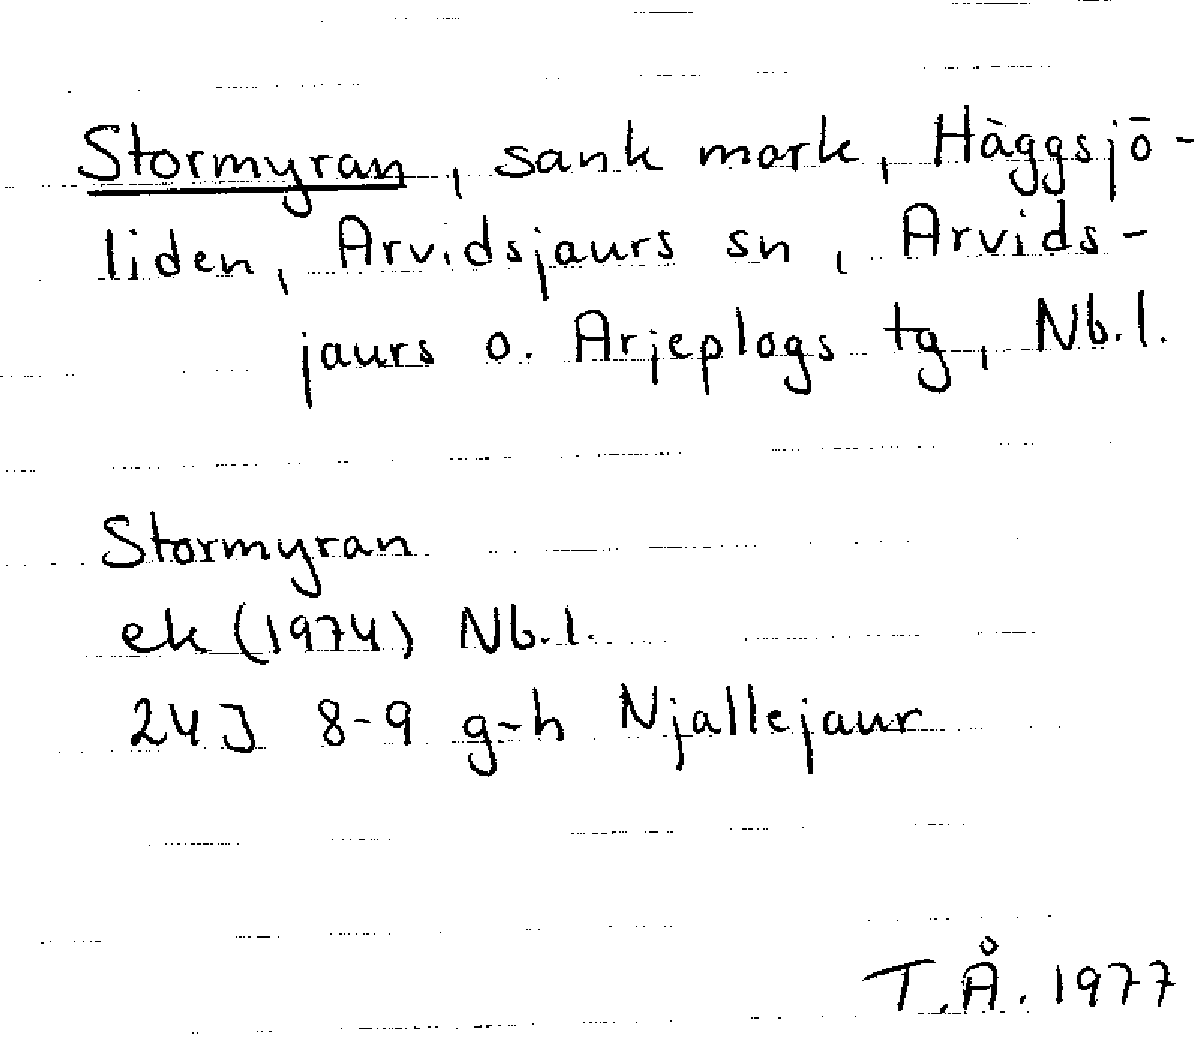 Stormyran, sank mark, Häggsjö-
liden, Arvidsjaurs sn, Arvids-
jaurs o. Arjeplogs tg, Nb.l.
Stormyran
ek (1974) Nb.l.
24J 8-9 g-h Njallejaur
T.Å. 1977